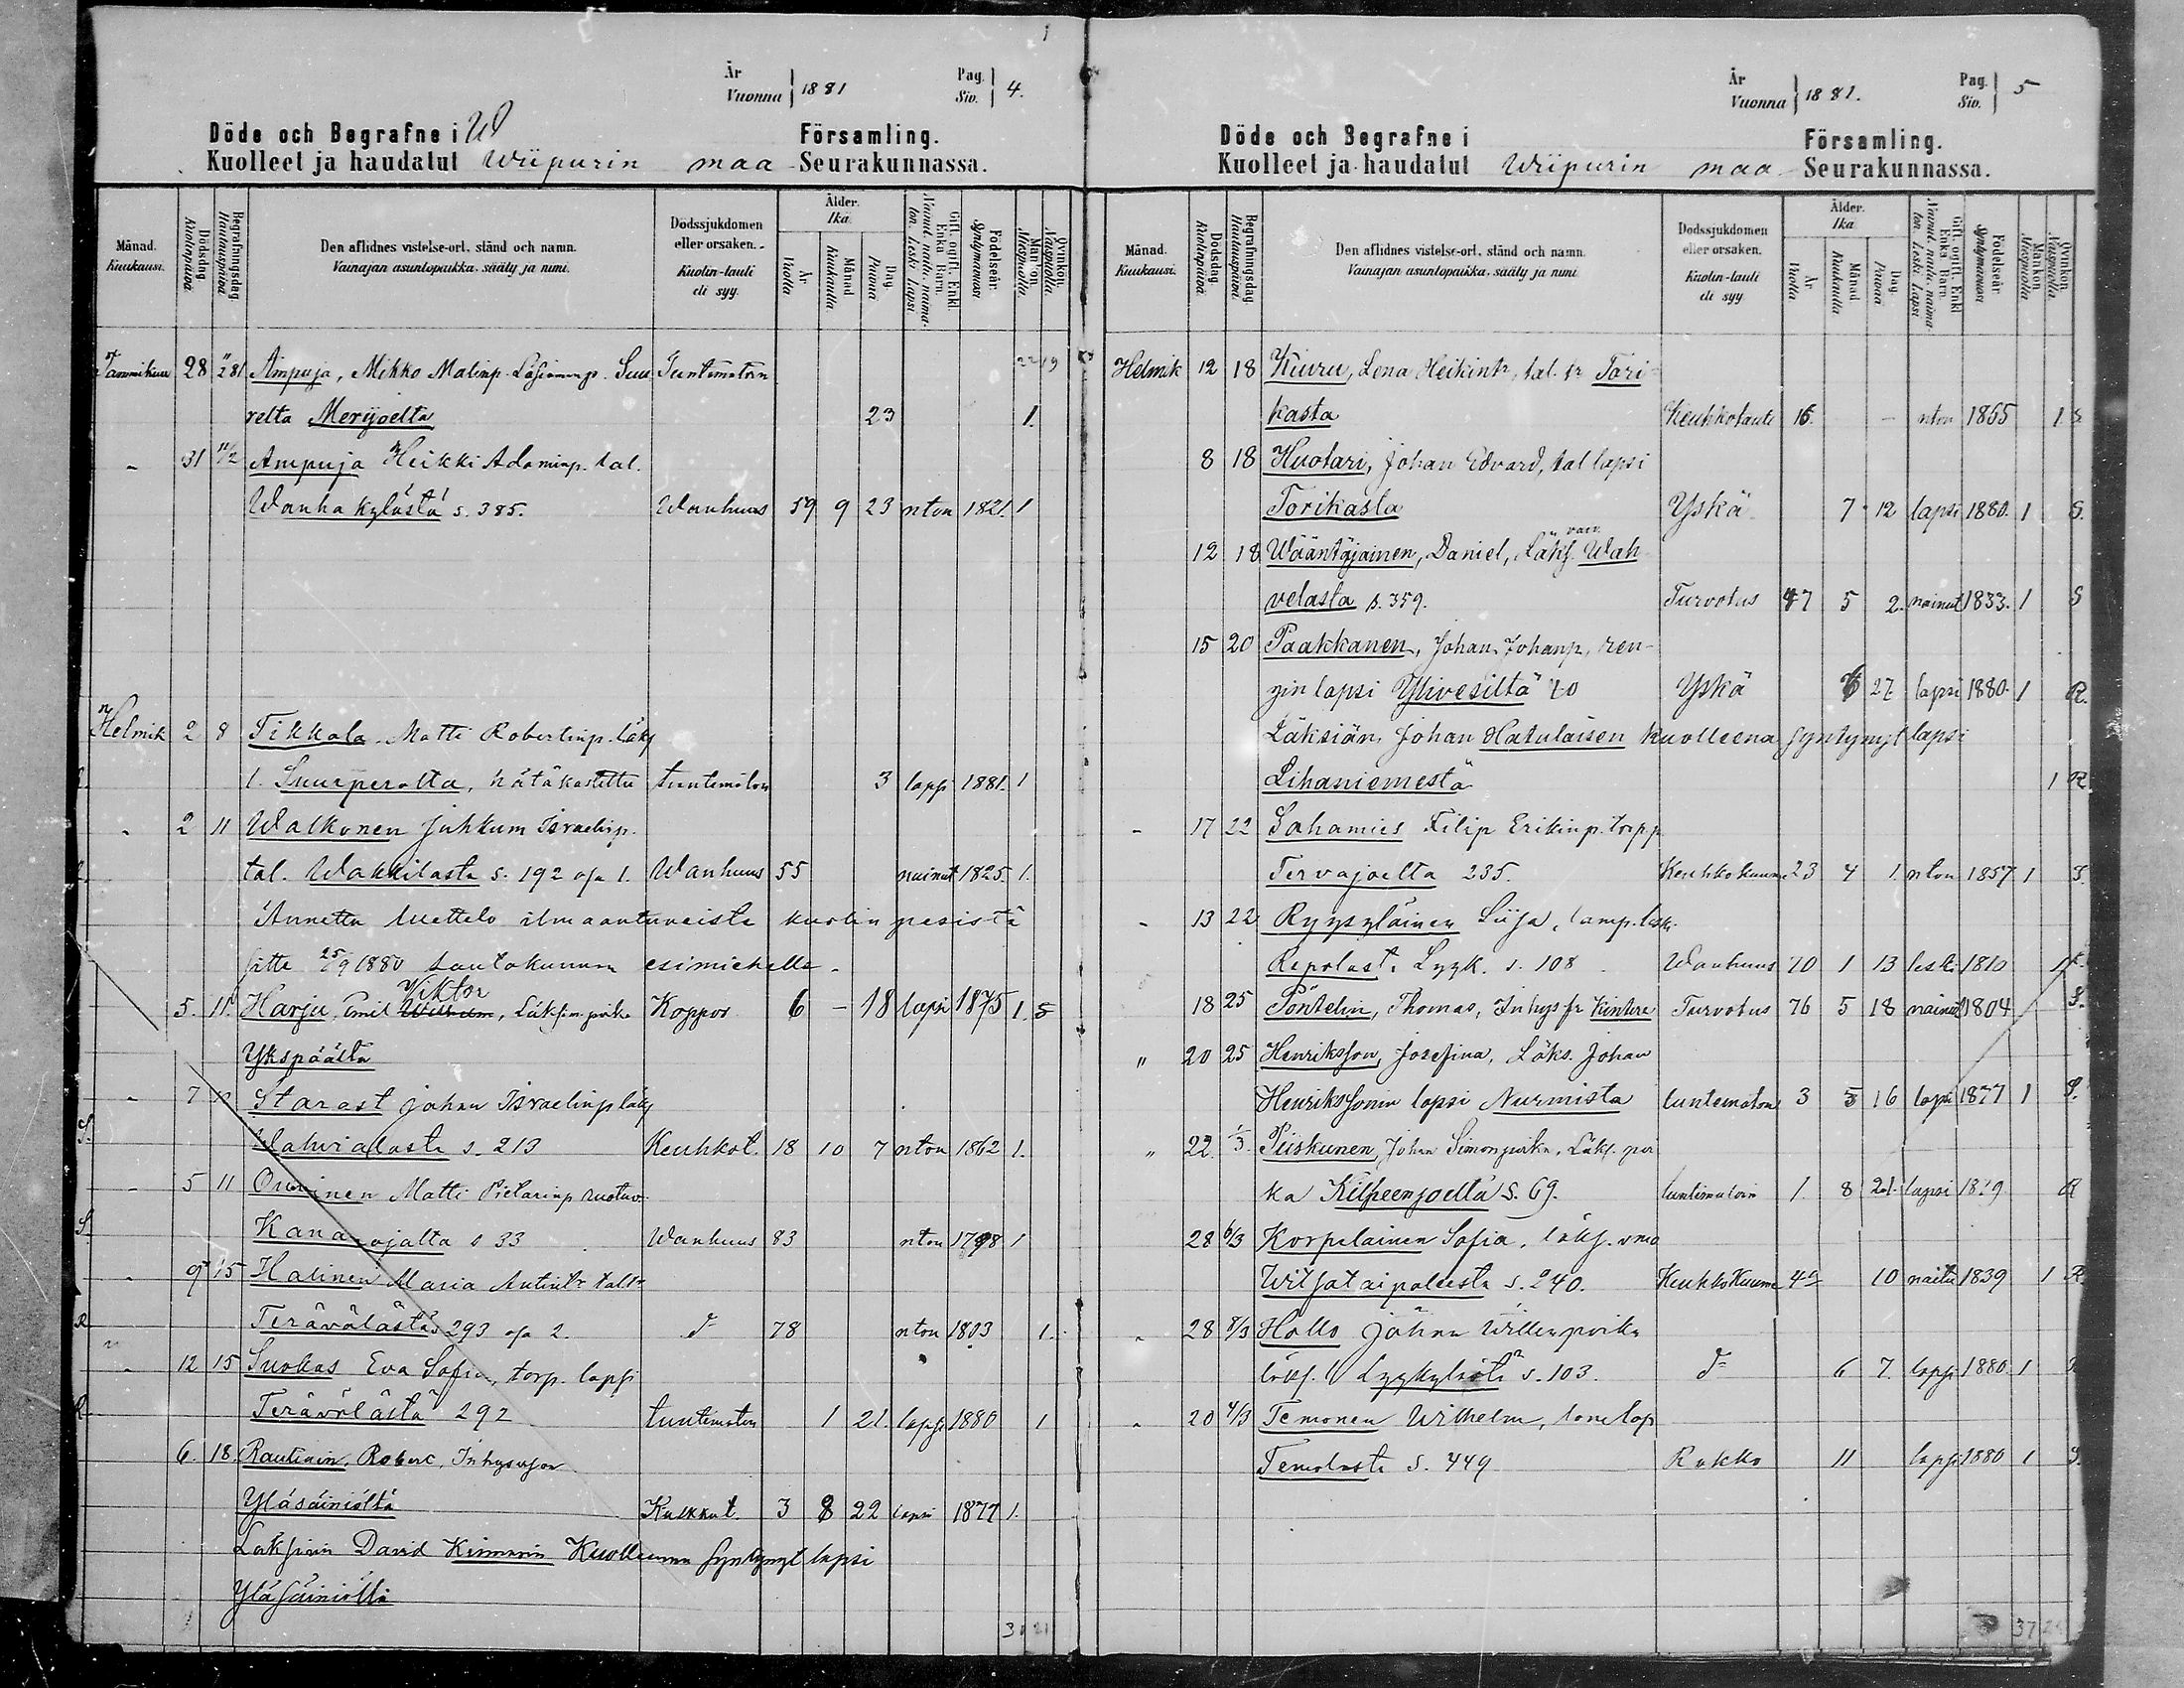 År Vuonna 1881 Pag. Siv. 4.
Döde och Begrafne i W Församling.
Kuolleet ja haudatut Wiipurin maa Seurakunnassa.
Månad. Kuukausi.
Dödsdag. Kuolinpäivä.
Begrafningsdag. Hautauspäivä.
Den aflidnes vistelse-ort, stånd och namn.
Vainajan asuntopaikka, sääty ja nimi.
Dödssjukdomen eller orsaken.
Kuolin-tauti eli syy.
Ålder. Ikä.
År Vuotta
Månad Kuukautta
Dag. Päivää
Gift, ogift, Enkl. Enka Barn.
Nainut, naitu, naimaton Leski Lapsi
Födelseår. Syntymävuosi
Mankön. Miespuolia.
Qvinkön. Vaispuolia.
Tammikuu 28 Ampuja, Mikko Matinp. Suu Tuntematon 22 19
relta Merijoelta 23 1.
31 11/2 Ampuja Heikki Adaminp. tal.
Wanha kylästä s. 385. Wanhuus 59 9 23 nton 1821. 1
Helmik 2 8 Tikkala. Matti Robertinp. läks
l. Suurperolta, hätäkastettu tuntematon 3 lapsi 1881. 1
2 11 Walkonen Juhkum Israelinp.
tal. Wakkilasta s. 192 1. Wanhuus 55 nainut 1825. 1.
Annettu luettelo ilmaantuneista kuolin pesistä
sitte 25/9 1880 lautakunnan esimiehelle.
Viktor
5. 11. Harju, Emil Wilhem, Läks poika Koppos 6 - 18 lapsi 1875 1. S
Ykspäältä
7 Starast Johan Israelinp läks
S. Wahvialasta s. 213 Keuhkot. 18 10 7 nton 1862 1.
5 11 Ouvinen Matti Pietarinp
S. Kananojalta s 33 Wanhuus 83 nton 1798 1
9 15 Halinen Maria Antint.
R Terävälästä s 293 2. d:o 78 nton 1803 1.
12 15 Suokas Eva Sofia, torp. lapsi
R. Terävälästä 292 tuntematon 1 21. lapsi 1880 1
6. 18. Rautiain, Robert,
Yläsäiniöltä Kulkut. 3 8 22 lapsi 1877 1.
Läksiäin David Kinnarin Kuolleena syntynyt lapsi
Yläsäiniöltä
31 21
År Vuonna 1881. Pag. Siv. 5
Döde och Begrafne i Församling.
Kuolleet ja haudatut Wiipurin maa Seurakunnassa.
Månad. Kuukausi.
Dödsdag. Kuolinpäivä.
Begrafningsdag. Hautauspäivä.
Den aflidnes vistelse-ort, stånd och namn.
Vainajan asuntopaikka, sääty ja nimi
Dödssjukdomen eller orsaken.
Kuolin-tauti eli syy.
Ålder. Ikä.
År Vuotta
Månad Kuukautta
Dag. Päivää
Gift, ogift, Enkl Enka Barn.
Nainut, naitu, naimaton Leski Lapsi
Födelseår. Syntymävuosi
Mankön. Miespuolia
Qvinkön. Vaispuolia.
Helmik 12 18 Kiuru, Lena Heikint:r, tal. tr Tori-
kasta Keuhkotauti 15. - nton 1865 1 S
8 18 Huotari, Johan Edvard, tal lapsi
Torikasta Yskä 7 12 lapsi 1880. 1 S.
12 18 Wääntäjainen, Daniel, Läks. Wah
velasta s. 359. Turvotus 47 5 2. nainut 1833. 1 S
15 20 Paakkanen, Johan Johanp, ren-
gin lapsi Ylivesiltä 70 Yskä 27 lapsi 1880. 1 R.
Läksiän, Johan Hatulaisen Kuolleena syntynyt lapsi
Lihaniemestä 1 R.
17 22 Sahamies Filip Erikinp. torpp
Tervajoelta 235. Keuhkokuume 23 4 1 nton 1857 1 S.
13 22 Ryysyläinen Liisa, lamp. leski.
Repolasta Lyyk. s. 108 Wanhuus 70 1 13 leski 1810 1
18 25 Pöntelin, Thomas, Inhys fr Kintere Turvotus 76 5 18 nainut 1804 S.
" 20 25 Henriksson, Josefina, Läks. Johan
Henrikssonin lapsi Nurmista tuntematon 3 3 16 lapsi 1877 1 S.
" 22. 1/3. Piiskunen, Johan Simonpoika, Läks. poi
ka Kilpeenjoelta S. 69. tuntematoin 1 8 21. lapsi 1879 R
28 6/3 Korpelainen Sofia, läks. vmo
Wilsataipaleesta s. 240. KeuhkoKuume 10 naitu 1839 1 R
28 8/3 Hallo Johan Willenpoika
läks. l Lyykylästä s. 103. d:o 6 7. lapsi 1880. 1
20 4/3 Temonen Wilhelm, lap
Temolasta s. 449 Rokko 11 lapsi 1880 1 S.
37